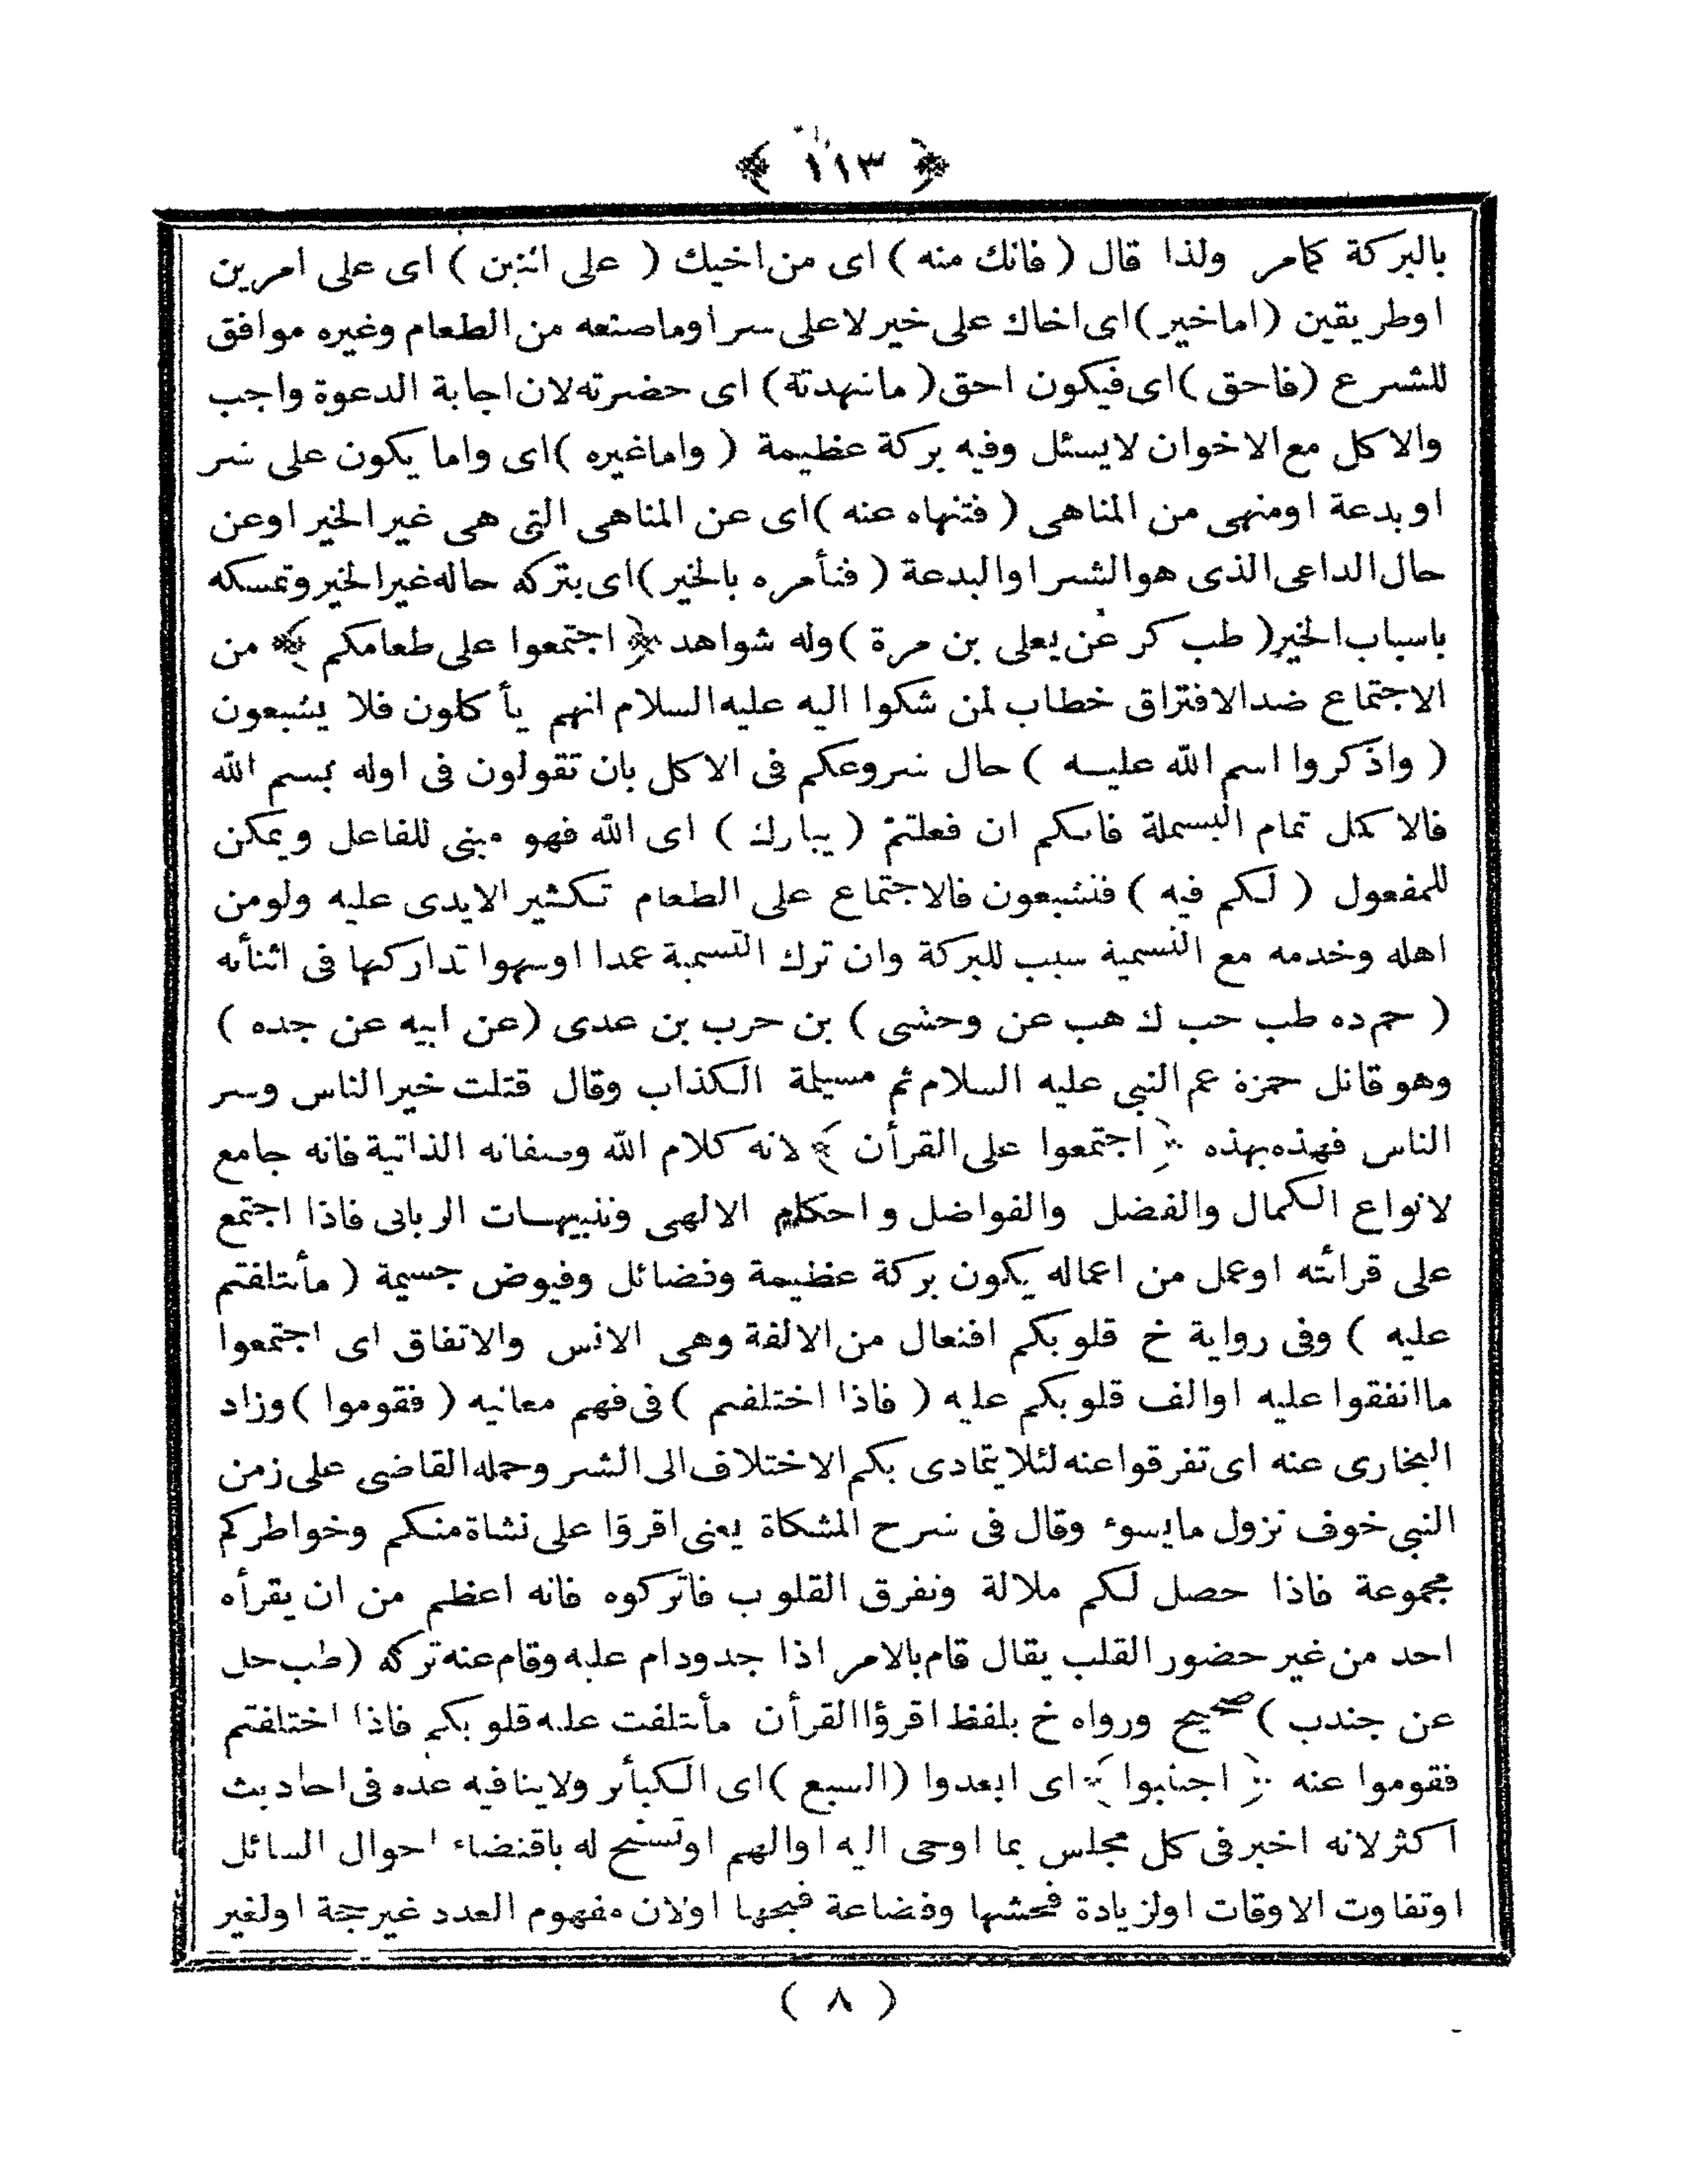 ﴿ ١١٣ ﴾
بالبركة كمامر ولذا قال ( فانك منه ) اى من اخيك ( على اثنين ) اى على امرين
اوطريقين ( اماخير ) اى اخاك على خير لاعلى شر اوماصنعه من الطعام وغيره موافق
للشرع ( فاحق ) اى فيكون احق ( ماشهدته ) اى حضرته لان اجابة الدعوة واجب
والاكل مع الاخوان لايسئل وفيه بركة عظيمة ( واماغيره ) اى واما يكون على شر
اوبدعة اومنهى من المناهى ( فتنهاه عنه ) اى عن المناهى التى هى غير الخير اوعن
حال الداعى الذى هو الشر او البدعة ( فتأمره بالخير ) اى بتركه حاله غير الخير وتمسكه
باسباب الخير ( طب كر عن يعلى بن مرة ) وله شواهد ﴿ اجتمعوا على طعامكم ﴾ من
الاجتماع ضد الافتراق خطاب لمن شكوا اليه عليه السلام انهم يأكلون فلا يشبعون
( واذكروا اسم الله عليه ) حال شروعكم فى الاكل بان تقولون فى اوله بسم الله
فالاكمل تمام البسملة فانكم ان فعلتم ( يبارك ) اى الله فهو مبنى للفاعل ويمكن
للمفعول ( لكم فيه ) فتشبعون فالاجتماع على الطعام تكثير الايدى عليه ولومن
اهله وخدمه مع التسمية سبب للبركة وان ترك التسمية عمدا اوسهوا تداركها فى اثنائه
( حم ده طب حب ك هب عن وحشى ) بن حرب بن عدى ( عن ابيه عن جده )
وهو قاتل حمزة عم النبى عليه السلام ثم مسيلمة الكذاب وقال قتلت خير الناس وشر
الناس فهذه بهذه ﴿ اجتمعوا على القرأن ﴾ لانه كلام الله وصفاته الذاتية فانه جامع
لانواع الكمال والفضل والفواضل و احكام الالهى وتنبيهات الربانى فاذا اجتمع
على قرائته اوعمل من اعماله يكون بركة عظيمة وفضائل وفيوض جسيمة ( مأتلفتم
عليه ) وفى رواية خ قلوبكم افتعال من الالفة وهى الانس والاتفاق اى اجتمعوا
مااتفقوا عليه اوالف قلوبكم عليه ( فاذا اختلفتم ) فى فهم معانيه ( فقوموا ) وزاد
البخارى عنه اى تفرقوا عنه لئلا يتمادى بكم الاختلاف الى الشر وحمله القاضى على زمن
النبى خوف نزول مايسوء وقال فى شرح المشكاة يعنى اقرؤا على نشاة منكم وخواطركم
مجموعة فاذا حصل لكم ملالة وتفرق القلوب فاتركوه فانه اعظم من ان يقرأه
احد من غير حضور القلب يقال قام بالامر اذا جد ودام عليه وقام عنه تركه ( طب حل
عن جندب ) صحيح ورواه خ بلفظ اقرؤا القرأن مأتلفت عليه قلوبكم فاذا اختلفتم
فقوموا عنه ﴿ اجتنبوا ﴾ اى ابعدوا ( السبع ) اى الكبائر ولاينافيه عده فى احاديث
اكثر لانه اخبر فى كل مجلس بما اوحى اليه اوالهم اوتسنح له باقتضاء احوال السائل
اوتفاوت الاوقات اولزيادة فحشها وفضاعة قبحها اولان مفهوم العدد غير حجة اولغير
( ٨ )